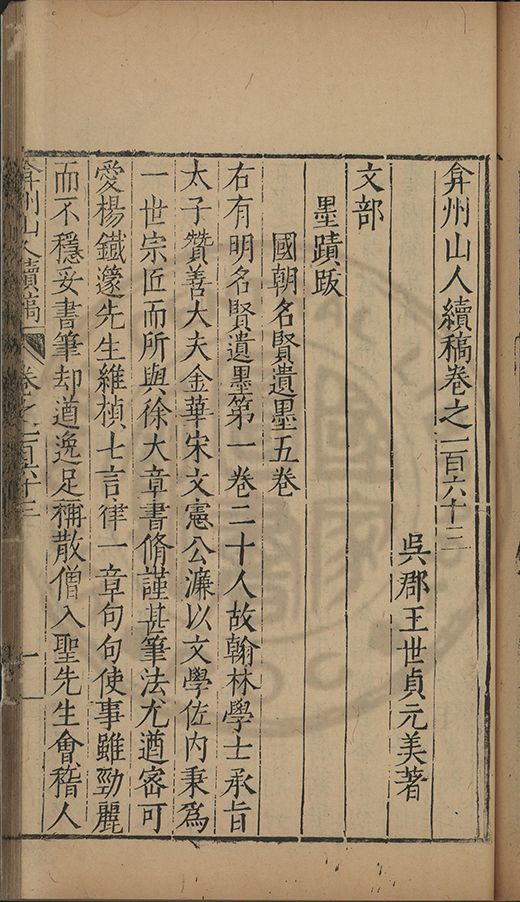 弇州山人續稿卷之一百六十三
吳郡王世貞元美著
文部
墨蹟跋
國朝名賢遺墨五卷
右有明名賢遺墨第一卷二十人故翰林學士承旨
太子贊善大夫金華宋文憲公濂以文學佐内秉為
一世宗匠而所與徐大章書脩謹甚筆法尤遒密可
愛楊鐵篴先生維楨七言律一章句句使事雖勁麗
而不穩妥書筆却遒逸足稱散僧入聖先生會稽人
弇州山人續稿
卷之一百六十三
一